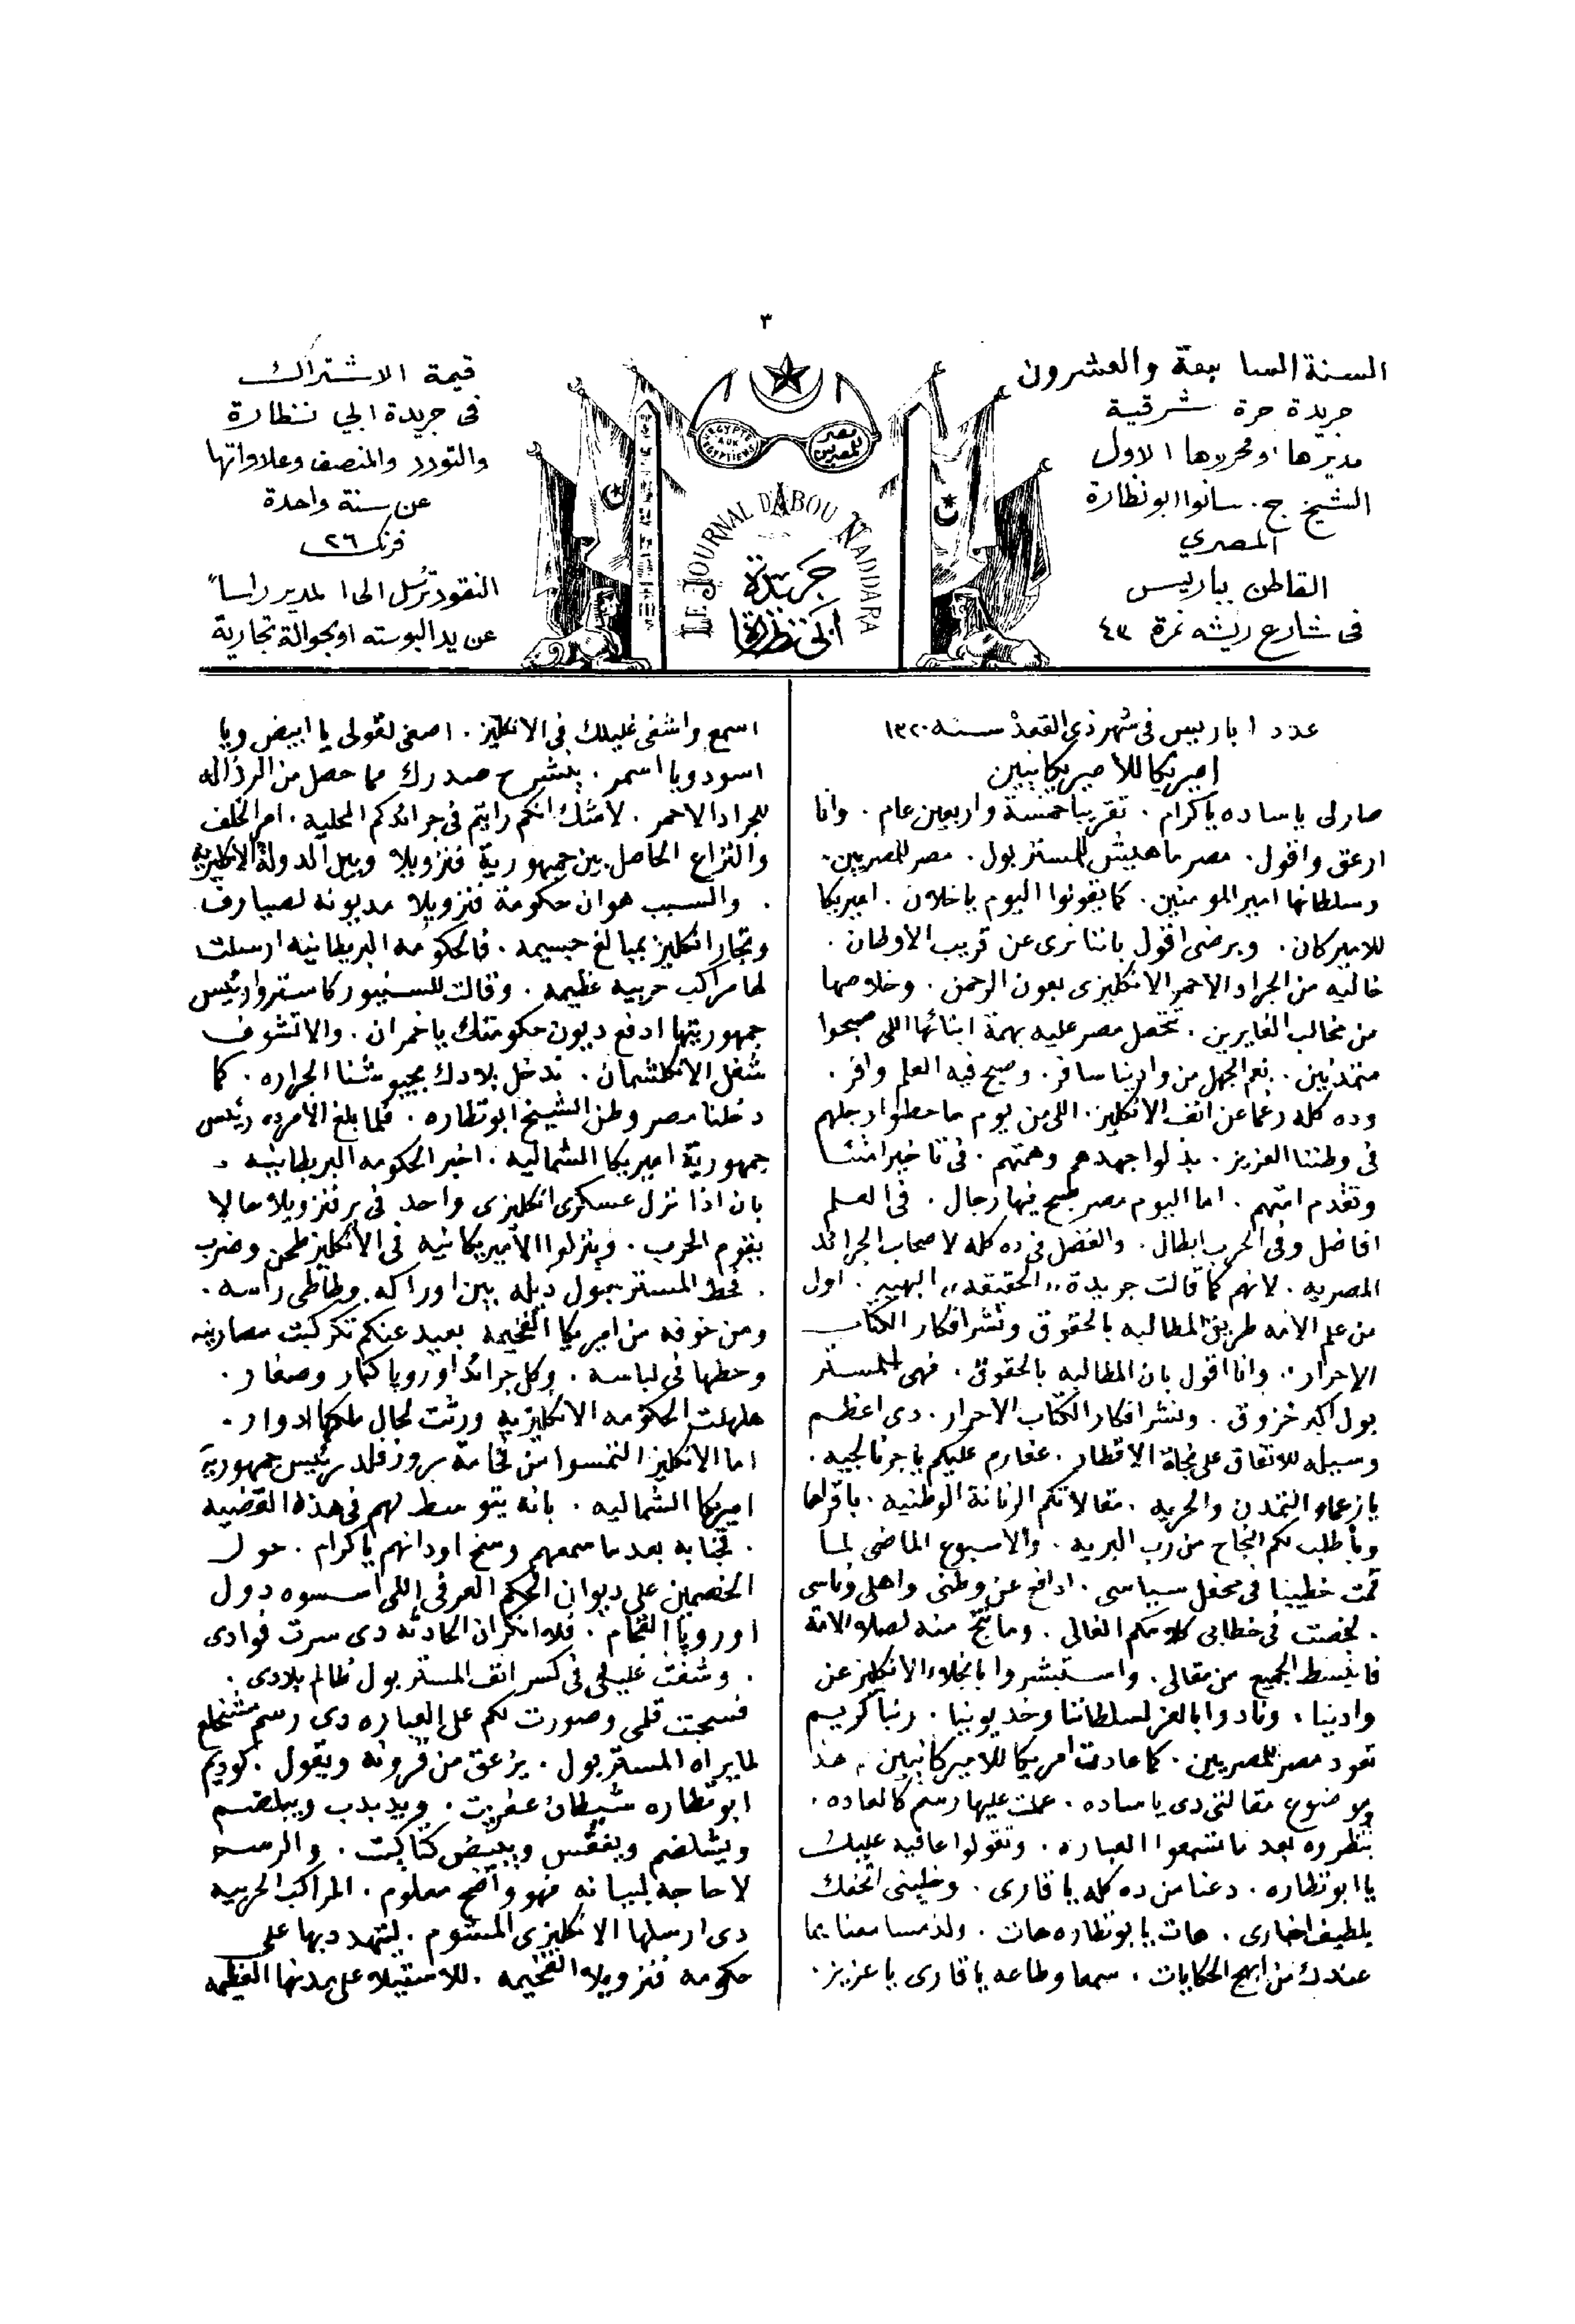 ٣
السنة السابعة والعشرون
جريدة حرة شرقية
مديرها ومحررها الاول
الشيخ ج. سانوا ابو نظارة
المصري
القاطن بباريس
فى شارع ريشه نمرة ٤٣
مصر للمصريين
EGYPTE AUX EGYPTIENS
LE JOURNAL D'ABOU NADDARA
جريدة
ابى نظارة
قيمة الاشتراك
فى جريدة ابي نظارة
والتودد والمنصف وعلاواتها
عن سنة واحدة
فرنك ٢٦
النقود ترسل الى المدير راسا
عن يد البوسته او بحوالة تجارية
عدد ١ باريس فى شهر ذى القعدة سنه ١٣٢٠
اميريكا للاميريكانيين
صارلى ياساده ياكرام . تقريبا خمسة واربعين عام . وانا
ازعق واقول . مصر ماهيش للمستر بول . مصر للمصريين .
وسلطانها امير المومنين . كما يقولوا اليوم ياخلان . اميريكا
للاميركان . وبرضى اقول باننا نرى عن قريب الاوطان .
خاليه من الجراد الاحمر الانكليزى بعون الرحمن . وخلاصها
من مخالب الغايرين . تحصل مصر عليه بهمة ابنائها اللى صبحوا
متمدنين . نعم الجهل من وادينا سافر . وصبح فيه العلم وافر .
وده كله رغما عن انف الانكليز . اللى من يوم ماحطوا رجلهم
فى وطننا العزيز . بذلوا جهدهم وهمتهم . فى تاخير امتنا
وتقدم امتهم . اما اليوم مصر صبح فيها رجال . فى العلم
افاضل وفى الحرب ابطال . والفضل فى ده كله لاصحاب الجرائد
المصريه . لانهم كما قالت جريدة ,, الحقيقه ,, البهيه . اول
من علم الامه طريق المطالبه بالحقوق ونشر افكار الكتاب
الاحرار ,, . وانا اقول بان المطالبه بالحقوق . فهى للمستر
بول اكبر خزوق . ونشر افكار الكتاب الاحرار . دى اعظم
وسيله للاتفاق على نجاة الاقطار . عفارم عليكم ياجرنالجيه .
يازعماء التمدن والحريه . مقالاتكم الرنانة الوطنيه . باقراها
وباطلب لكم النجاح من رب البريه . والاسبوع الماضى لما
قمت خطيبا فى محفل سياسى . ادافع عن وطنى واهلى وناسى
. لخصت فى خطابى كلامكم الغالى . وما نتج منه لصلاح الامة
فانبسط الجميع من مقالى . واستبشروا بانجلاء الانكليز عن
وادينا . ونادوا بالعز لسلطاننا وخديوينا . ربنا كريم
تعود مصر للمصريين . كما عادت امريكا للاميركانيين . هذا
موضوع مقالتى دى ياساده . عملت عليها رسم كالعاده .
تنظروه بعد ماتسمعوا العباره . وتقولوا عافيه عليك
يا ابو نظاره . دعنا من ده كله يا قارى . وخلينى اتحفك
بلطيف اخبارى . هات يابونظاره هات . ولذ مسامعنا بما
عندك من ابهج الحكايات . سمعا وطاعه يا قارى يا عزيز .
اسمع واشفى غليلك فى الانكليز . اصغى لقولى يا ابيض ويا
اسود ويا اسمر . ينشرح صدرك مما حصل من الرذاله
للجراد الاحمر . لاشك انكم رايتم فى جرائدكم المحليه . امر الخلف
والنزاع الحاصل بين جمهورية فنزويلا وبين الدولة الانكليزيه
. والسبب هو ان حكومة فنزويلا مديونه لصيارف
وتجار انكليز بمبالغ جسيمه . فالحكومه البريطانيه ارسلت
لها مراكب حربيه عظيمه . وقالت للسنيور كاسترو رئيس
جمهوريتها ادفع ديون حكومتك ياخمران . والا تشوف
شغل الانكلشمان . ندخل بلادك بجيوشنا الجراره . كما
دخلنا مصر وطن الشيخ ابو نظاره . فلما بلغ الامر ده رئيس
جمهورية اميريكا الشماليه . اخبر الحكومه البريطانيه .
بان اذا نزل عسكرى انكليزى واحد فى بر فنزويلا حالا
يقوم الحرب . وينزلوا الاميريكانيه فى الانكليز طحن وضرب
. فحط المستر بول ديله بين اوراكه وطاطى راسه .
ومن خوفه من اميريكا الفخيمه بعيد عنكم تكركبت مصارينه
وحطها فى لباسه . وكل جرائد اوروبا كبار وصغار .
هلهلت الحكومه الانكليزيه ورثت لحال ملكها ادوار .
اما الانكليز التمسوا من فخامة روزفلد رئيس جمهورية
اميريكا الشماليه . بانه يتوسط لهم فى هذه القضيه
. فجنابه بعد ما سمعهم وسخ اودانهم ياكرام . حول
الخصمين على ديوان الحكم العرفى اللى اسسوه دول
اوروبا الفخام . فلا انكر ان الحادثه دى سرت فوادى
. وشفت غليلى فى كسر انف المستر بول ظالم بلادى .
فسحبت قلمى وصورت لكم على العباره دى رسم مشخلع
لما يراه المستر بول . يزعق من قرونه ويقول . كوديم
ابو نظاره شيطان عفريت . ويدبدب ويبلضم
ويشلضم ويفقس ويبيض كتاكيت . والرسم
لا حاجة لبيانه فهو واضح معلوم . المراكب الحربيه
دى ارسلها الانكليزى المشوم . ليتهدد بها على
حكومه فنزويلا الفخيمه . للاستيلاء على مدنها العظيمه